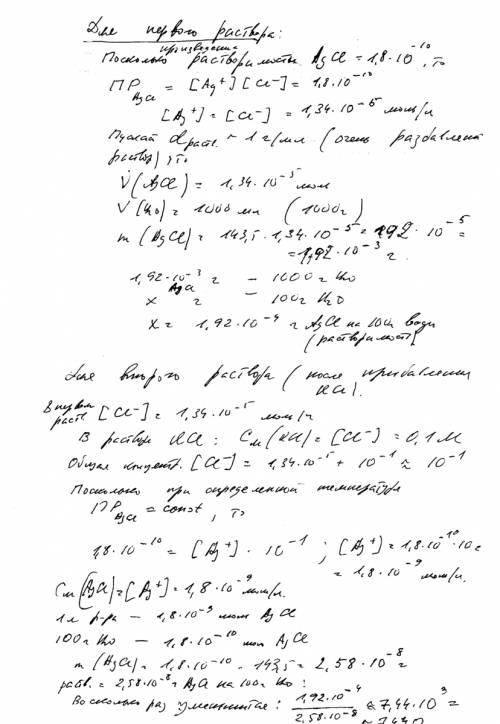 Для первого раствора:
произведение
Поскольку растворимости AgCl = 1,8·10⁻¹⁰, то
ПР AgCl = [Ag⁺][Cl⁻] = 1,8·10⁻¹⁰
[Ag⁺] = [Cl⁻] = 1,34·10⁻⁵ моль/л
Пускай d раст. ~ 1 г/мл (очень разбавлен
раствор), то
ν(AgCl) = 1,34·10⁻⁵ моль
V(H₂O) = 1000 мл (1000г)
m(AgCl) = 143,5·1,34·10⁻⁵ = 192·10⁻⁵ =
= 1,92·10⁻³ г.
1,92·10⁻³ г AgCl — 1000 г H₂O
x г — 100г H₂O
x = 1,92·10⁻⁴ г AgCl на 100г воды
(растворимость)
Для второго раствора (после прибавления
KCl).
В первом раств. [Cl⁻] = 1,34·10⁻⁵ моль/л
В растворе KCl: Cм(KCl) = [Cl⁻] = 0,1 М
Общая концент. [Cl⁻] = 1,34·10⁻⁵ + 10⁻¹ ≈ 10⁻¹
Поскольку при определенной температуре
ПР AgCl = const, то
1,8·10⁻¹⁰ = [Ag⁺]·10⁻¹ ; [Ag⁺] = 1,8·10⁻¹⁰·10 =
= 1,8·10⁻⁹ моль/л.
Cм(AgCl) = [Ag⁺] = 1,8·10⁻⁹ моль/л.
1л р-ра — 1,8·10⁻⁹ моль AgCl
100г H₂O — 1,8·10⁻¹⁰ моль AgCl
m(AgCl) = 1,8·10⁻¹⁰ · 143,5 = 2,58·10⁻⁸ г
раств. = 2,58·10⁻⁸ г AgCl на 100г H₂O:
Во сколько раз уменьшится: 1,92·10⁻⁴ / 2,58·10⁻⁸ ≈ 7,44·10³ =